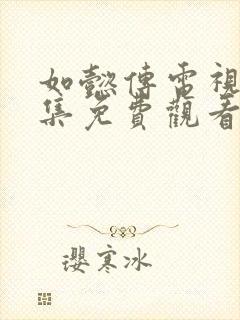 如懿傳電視
集免費觀看
瓔寒冰